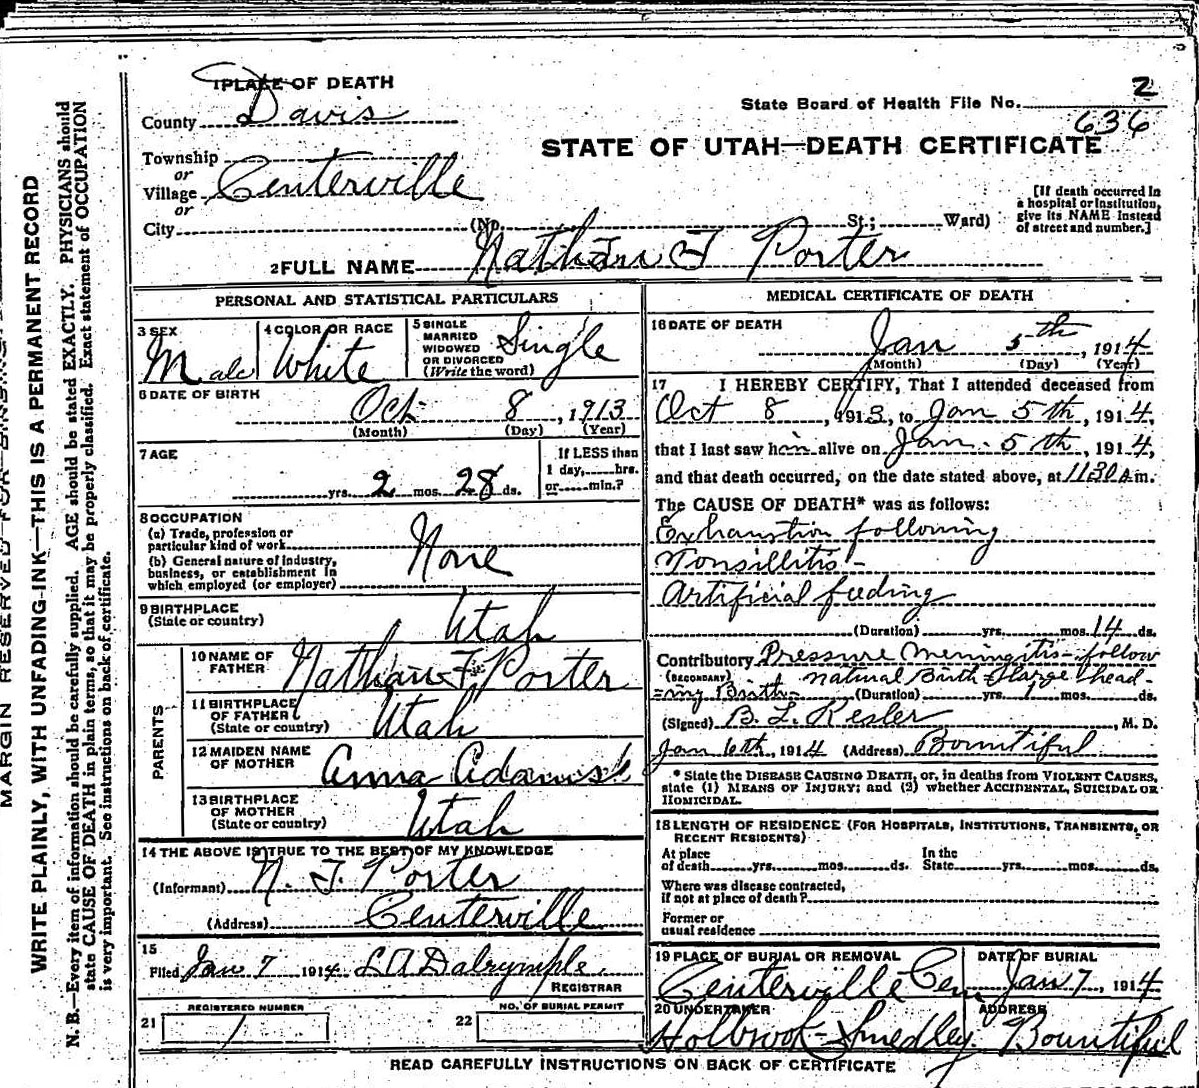 1 PLACE OF DEATH
County Davis
Township
or
Village Centerville
or
City (No. St.; Ward)
State Board of Health File No. 2
636
STATE OF UTAH—DEATH CERTIFICATE
[If death occurred in
a hospital or institution,
give its NAME instead
of street and number.]
2 FULL NAME Nathan T Porter
PERSONAL AND STATISTICAL PARTICULARS
3 SEX
Male
4 COLOR OR RACE
White
5 SINGLE
MARRIED
WIDOWED
OR DIVORCED
(Write the word)
Single
6 DATE OF BIRTH
Oct. 8, 1913
(Month) (Day) (Year)
7 AGE
yrs. 2 mos. 28 ds.
If LESS than
1 day, hrs.
or min.?
8 OCCUPATION
(a) Trade, profession or
particular kind of work
(b) General nature of industry,
business, or establishment in
which employed (or employer)
None
9 BIRTHPLACE
(State or country)
Utah
PARENTS
10 NAME OF
FATHER
Nathan T Porter
11 BIRTHPLACE
OF FATHER
(State or country)
Utah
12 MAIDEN NAME
OF MOTHER
Anna Adams
13 BIRTHPLACE
OF MOTHER
(State or country)
Utah
14 THE ABOVE IS TRUE TO THE BEST OF MY KNOWLEDGE
(Informant) N. T. Porter
(Address) Centerville
15
Filed Jan 7 1914 L A Dalrymple.
REGISTRAR
REGISTERED NUMBER
21 1
NO. OF BURIAL PERMIT
22
MEDICAL CERTIFICATE OF DEATH
16 DATE OF DEATH
Jan 5th, 1914
(Month) (Day) (Year)
17 I HEREBY CERTIFY, That I attended deceased from
Oct 8, 1913, to Jan 5th, 1914,
that I last saw him alive on Jan. 5th, 1914,
and that death occurred, on the date stated above, at 1130 a m.
The CAUSE OF DEATH* was as follows:
Exhaustion following
Tonsillitis-
Artificial feeding
(Duration) yrs. mos. 14 ds.
Contributory Pressure Meningitis- follow
(SECONDARY) natural Birth - Large head-
ing Birth- (Duration) yrs. 1 mos. ds.
(Signed) B. L. Kesler, M. D.
Jan 6th, 1914 (Address) Bountiful
* State the DISEASE CAUSING DEATH, or, in deaths from VIOLENT CAUSES,
state (1) MEANS OF INJURY; and (2) whether ACCIDENTAL, SUICIDAL OR
HOMICIDAL.
18 LENGTH OF RESIDENCE (FOR HOSPITALS, INSTITUTIONS, TRANSIENTS, OR
RECENT RESIDENTS)
At place In the
of death yrs. mos. ds. State yrs. mos. ds.
Where was disease contracted,
if not at place of death?
Former or
usual residence
19 PLACE OF BURIAL OR REMOVAL
Centerville Cem
DATE OF BURIAL
Jan 7, 1914
20 UNDERTAKER
Holbrook-Smedley
ADDRESS
Bountiful
READ CAREFULLY INSTRUCTIONS ON BACK OF CERTIFICATE
MARGIN RESERVED FOR
WRITE PLAINLY, WITH UNFADING INK—THIS IS A PERMANENT RECORD
N. B.—Every item of information should be carefully supplied. AGE should be stated EXACTLY. PHYSICIANS should
state CAUSE OF DEATH in plain terms, so that it may be properly classified. Exact statement of OCCUPATION
is very important. See instructions on back of certificate.